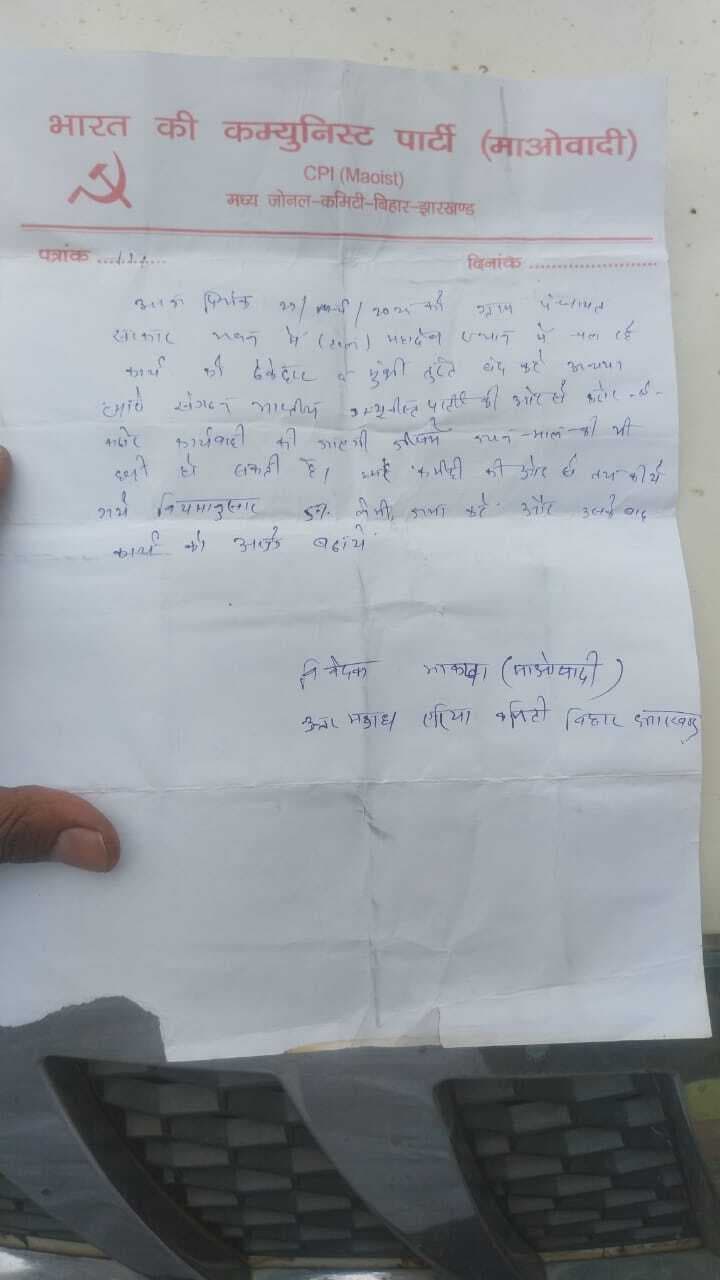 भारत की कम्युनिस्ट पार्टी (माओवादी)
CPI (Maoist)
मध्य जोनल-कमिटी-बिहार-झारखण्ड
पत्रांक ......
दिनांक ........................
को ग्राम पंचायत
सरकार भवन में महादेव स्थान में चल रहे
कार्य को ठेकेदार व मुंशी तुरंत बंद करे अन्यथा
हमारे संगठन पार्टी की ओर से कठोर से
कठोर कार्यवाही की जाएगी जिसमें जान-माल की भी
हो सकती है। हमारे कमिटी की ओर से तय किये
गये नियमानुसार 5% लेभी जमा करे और उसके बाद
कार्य को आगे बढ़ाये
निवेदक भाकपा (माओवादी)
एरिया कमिटी बिहार झारखण्ड